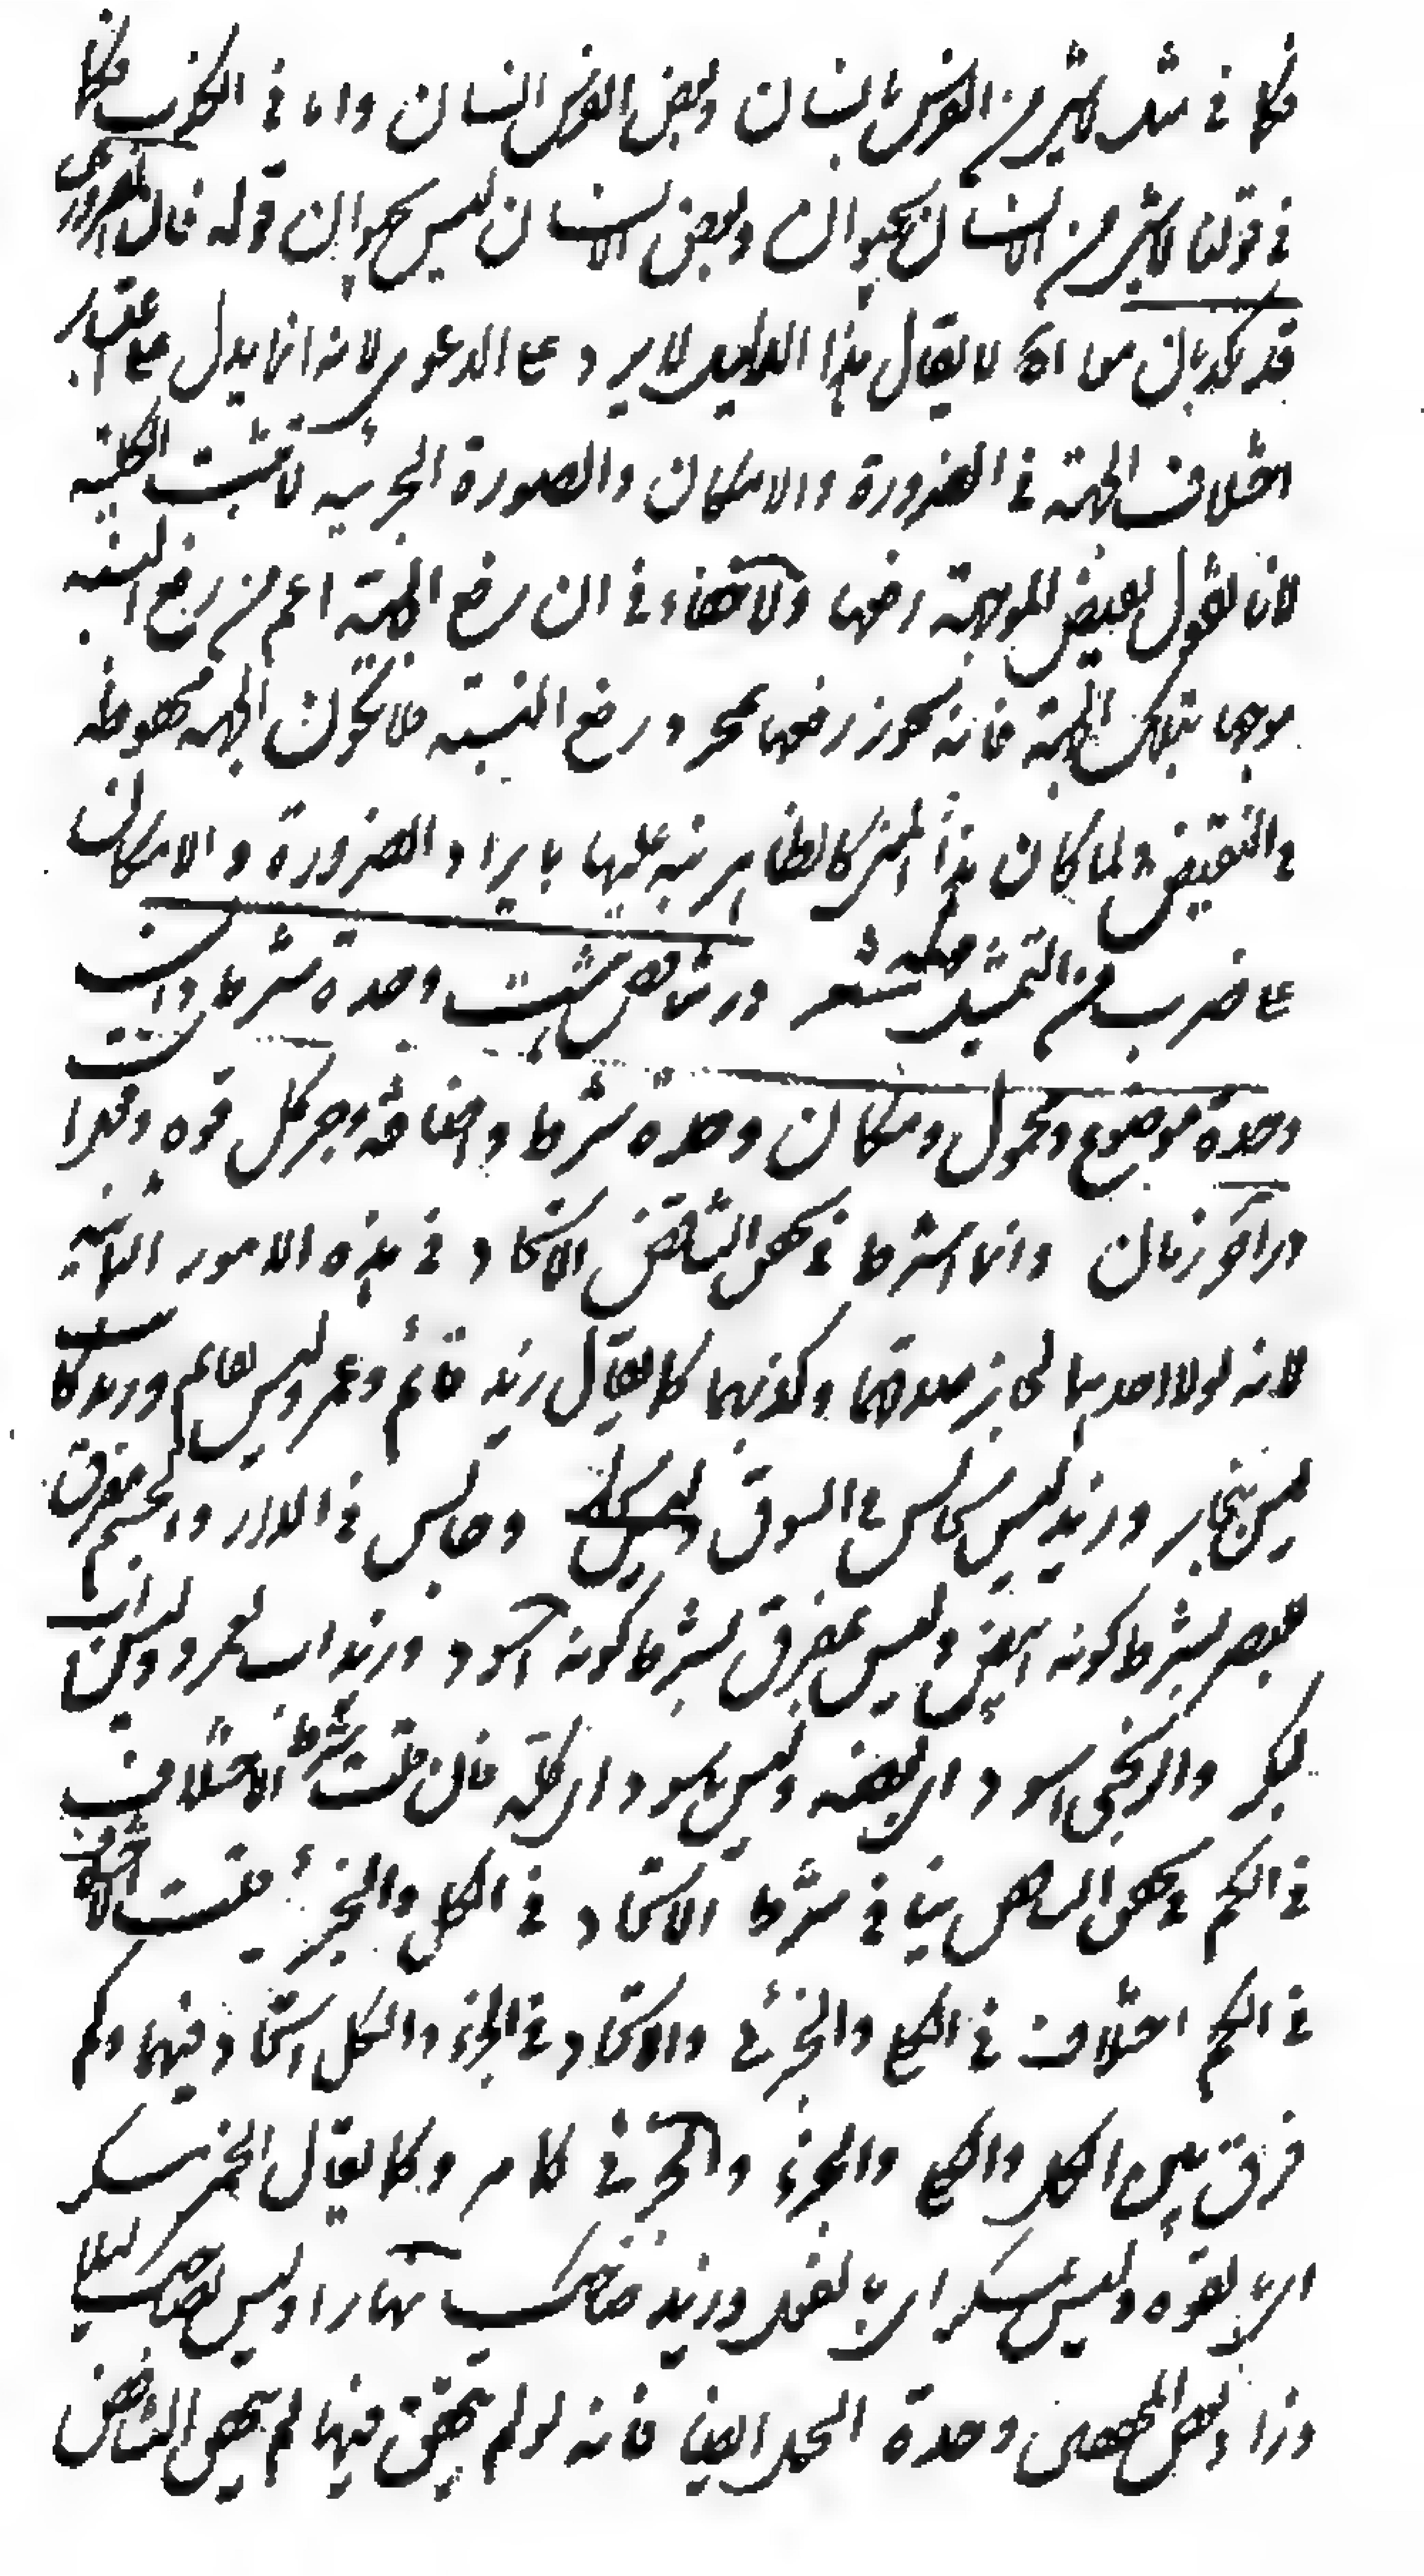 فكما في مثل لا شئ من الفرس بانسان وبعض الفرس انسان واما في الكذب فكما
في قولنا لا شئ من الانسان بحيوان وبعض الانسان ليس بحيوان قوله فان الضروريتين
قد تكذبان معا اه لا يقال هذا الدليل لا يرد على الدعوى لانه انما يدل على اعتبار
اختلاف الجهة في الضرورة والامكان والصورة الجزئية لا تثبت الكلية
لانا نقول نقيض الموجهة رفعها ولا خفاء في ان رفع الجهة اعم من رفع النسبة
موجها بتلك الجهة فانه يجوز رفعها بمجرد رفع النسبة فلا تكون الجهة محفوظة
في النقيض ولما كان هذا المعنى كالظاهر نبه عليها بايراد الضرورة والامكان
على ضرب من التمثيل شعر در تناقض هشت وحدة شرط دان
وحدة موضوع ومحمول ومكان وحدة شرط واضافة وجزء كل قوه وفعل
در آخر زمان وانما اشترط في تحقق التناقض الاتحاد في هذه الامور الثمانية
لانه لولا احديها لجاز صدقهما وكذبهما كما يقال زيد قائم وعمرو ليس بقائم وزيد كاتب
ليس بنجار وزيد ليس بجالس في السوق وجالس في الدار والجسم مفرق
للبصر بشرط كونه ابيض وليس بمفرق بشرط كونه اسود وزيد اب لعمرو وليس باب
لبكر والزنجي اسود اي بعضه وليس باسود اي كله فان قلت شرط الاختلاف
في الكم في تحقق التناقض ينافي شرط الاتحاد في الكل والجزء قلت الاختلاف
في الكم اختلاف في الكلي والجزئي والاتحاد في الجزء والكل اتحاد فيهما وكم
فرق بين الكل والكلي والجزء والجزئي كما مر وكما يقال الخمر مسكر
اي بالقوه وليس بمسكر اي بالفعل وزيد ضاحك نهارا وليس بضاحك ليلا
وزاد بعض المحققين وحدة الحمل ايضا فانه لو لم يتحقق فيها لم يتحقق التناقض